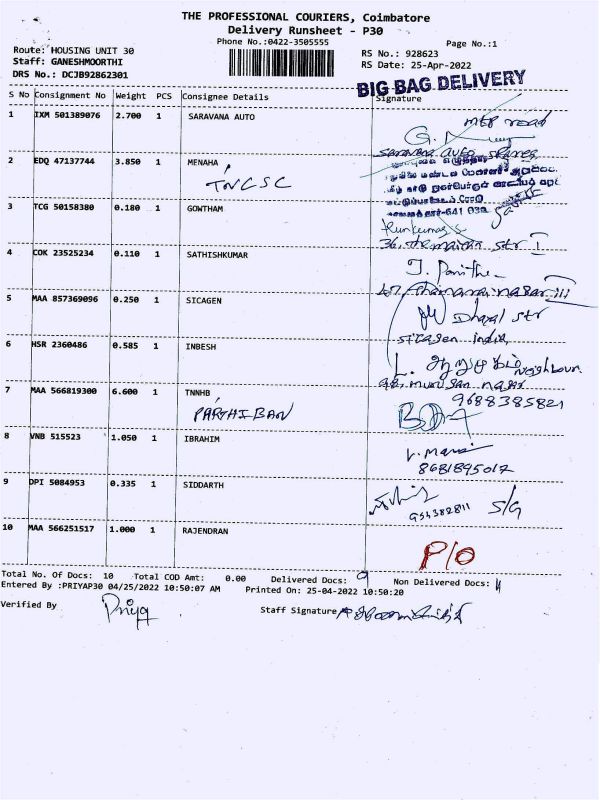 THE PROFESSIONAL COURIERS, Coimbatore
Delivery Runsheet - P30
Phone No.:0422-3505555
Page No.:1
Route: HOUSING UNIT 30
Staff: GANESHMOORTHI
DRS No.: DCJB92862301
RS No.: 928623
RS Date: 25-Apr-2022
BIG BAG DELIVERY
S No Consignment No Weight PCS Consignee Details Signature
1 IXM 501389076 2.700 1 SARAVANA AUTO
2 EDQ 47137744 3.850 1 MENAHA
TNCSC
641 038
3 TCG 50158380 0.180 1 GOWTHAM
4 COK 23525234 0.110 1 SATHISHKUMAR
5 MAA 857369096 0.250 1 SICAGEN
sicagen India
6 HSR 2360486 0.585 1 INBESH
Neighbour
7 MAA 566819300 6.600 1 TNNHB
PARTHIBAN
9688385821
8 VNB 515523 1.050 1 IBRAHIM
8681895017
9 DPI 5084953 0.335 1 SIDDARTH
S/G
10 MAA 566251517 1.000 1 RAJENDRAN
P/O
Total No. Of Docs: 10 Total COD Amt: 0.00 Delivered Docs: 9 Non Delivered Docs:
Entered By :PRIYAP30 04/25/2022 10:50:07 AM Printed On: 25-04-2022 10:50:20
Verified By Priya Staff Signature